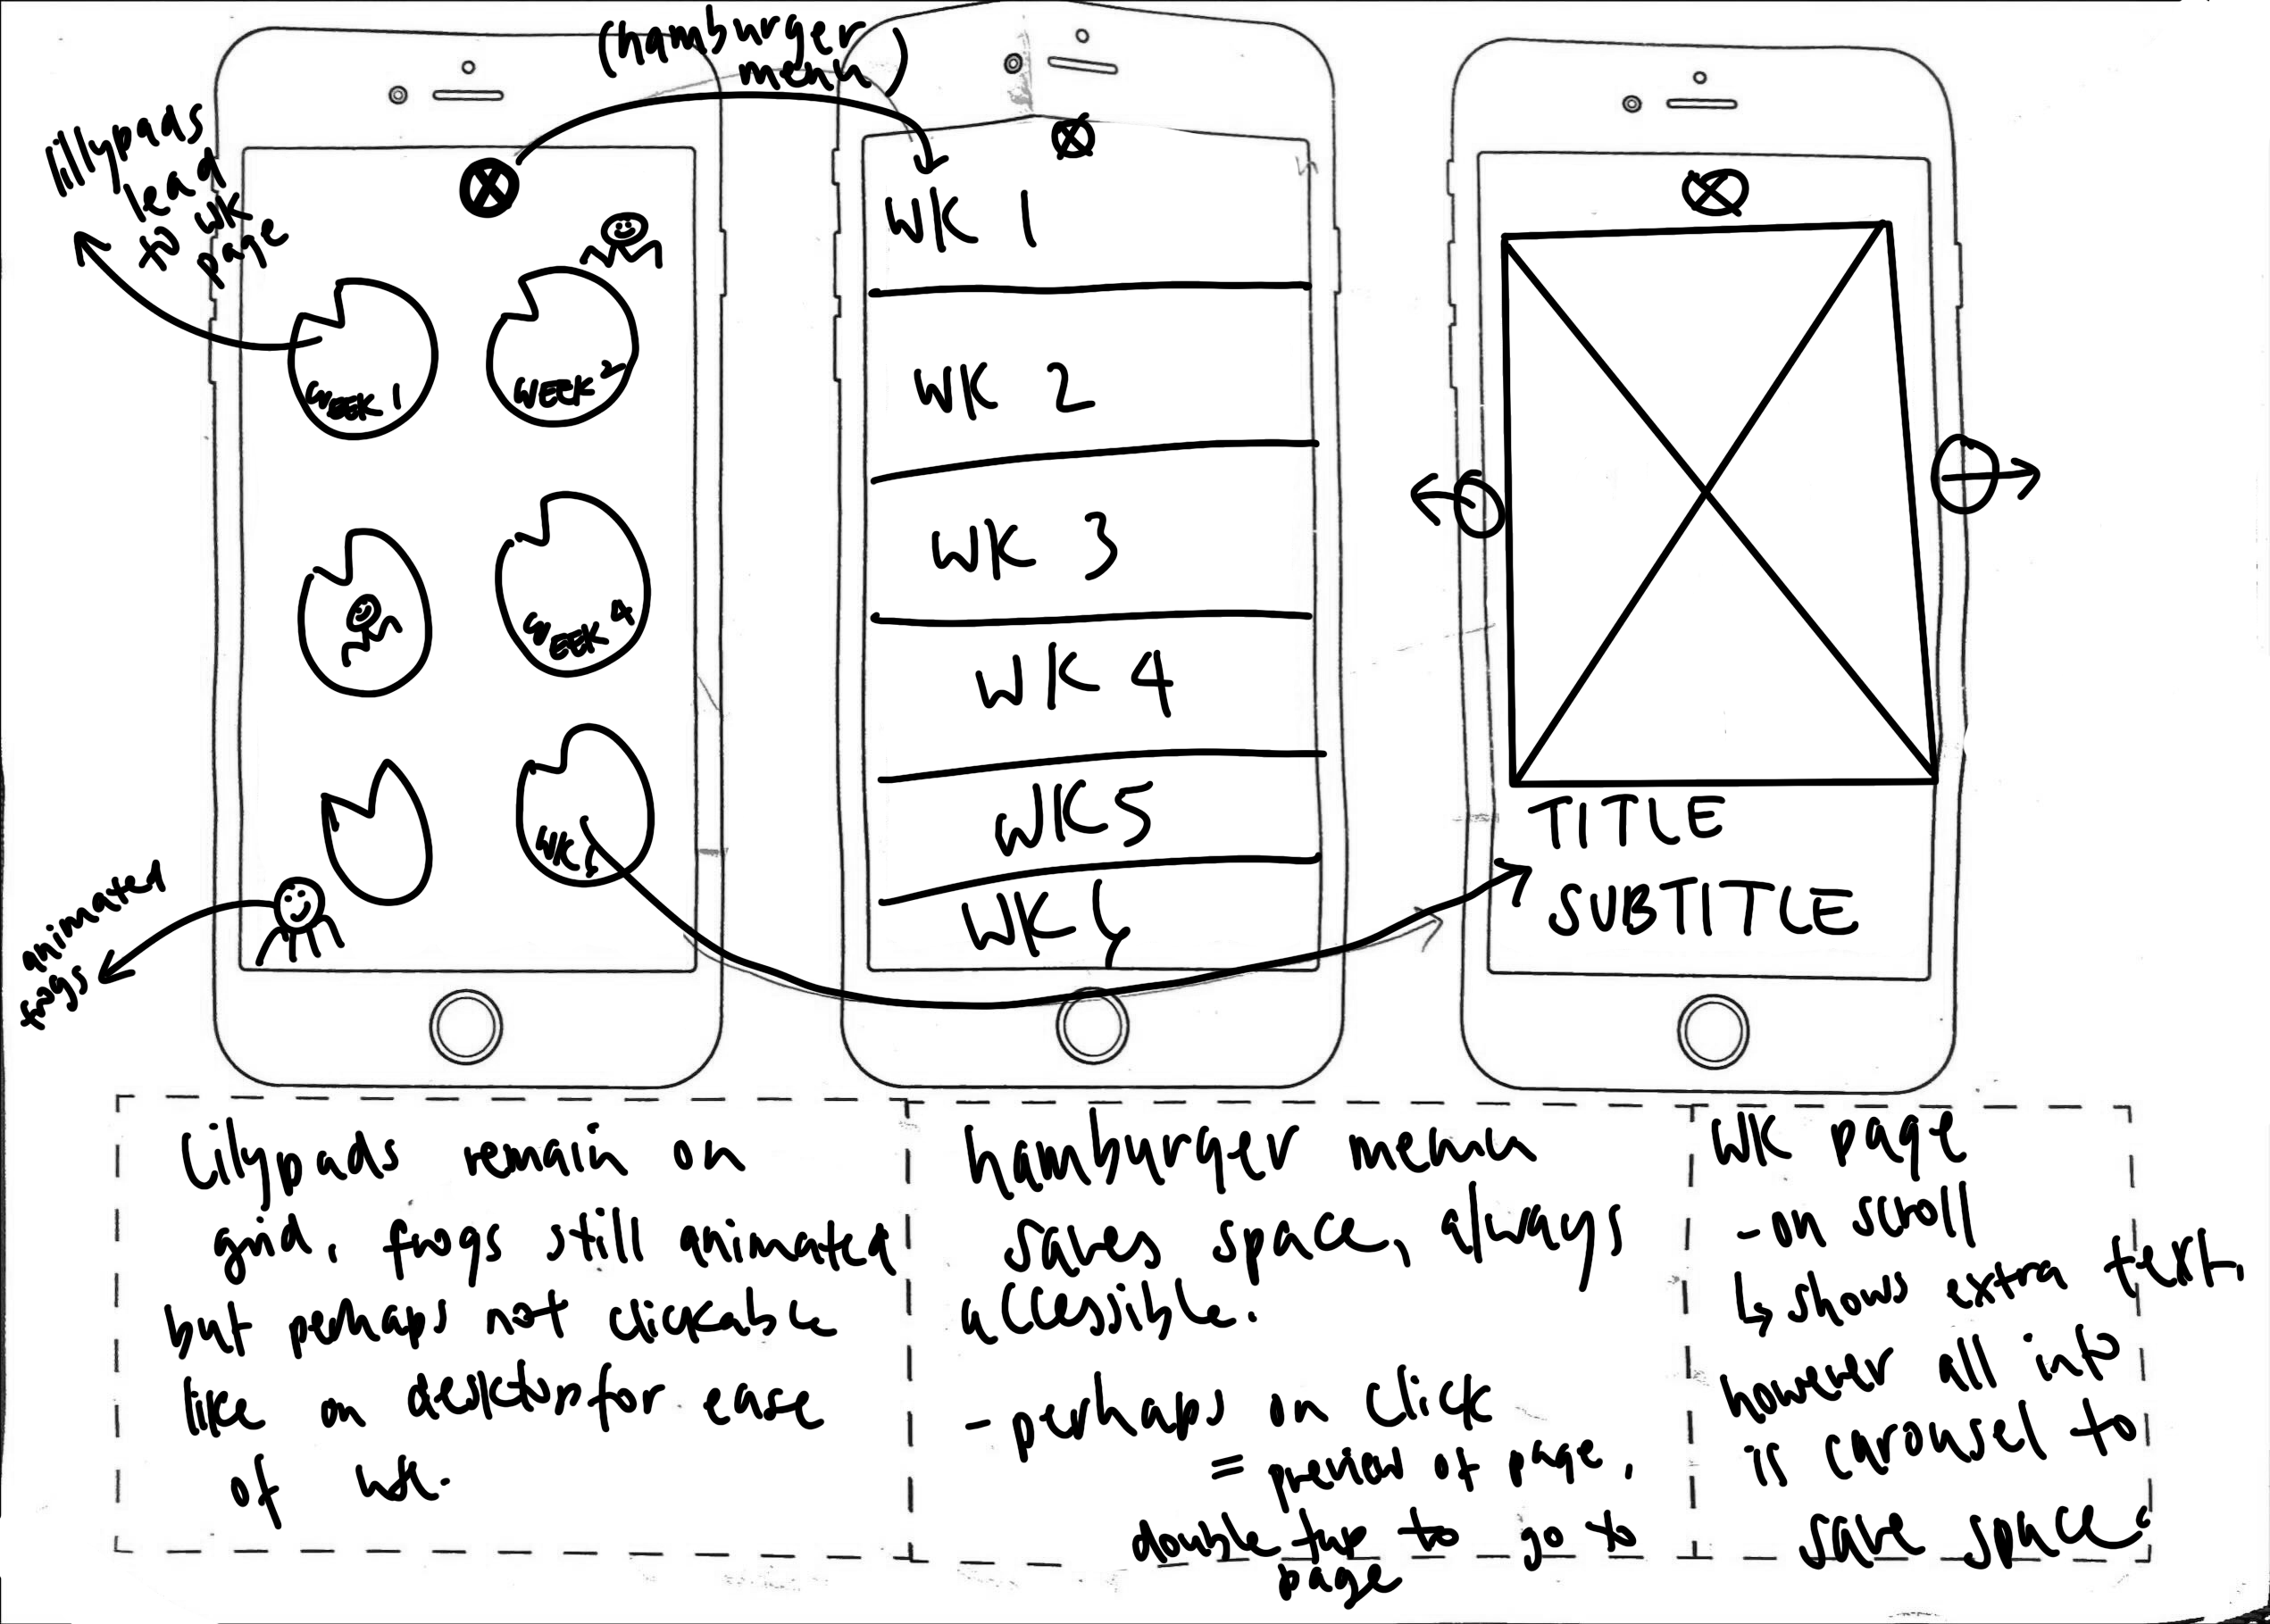 (hamburger
menu)
lillypads
lead
to WK
page
WEEK 1
WEEK 2
WEEK 4
animated
frogs
WK 1
WK 2
WK 3
WK 4
WK 5
WK 6
TITLE
SUBTITLE
Lilypads remain on
grid, frogs still animated
but perhaps not clickable
like on desktop for ease
of use.
hamburger menu
saves space, always
accessible.
- perhaps on click
= preview of page,
double tap to go to
page
WK page
- on scroll
↳ shows extra text,
however all info
is carousel to
save space.